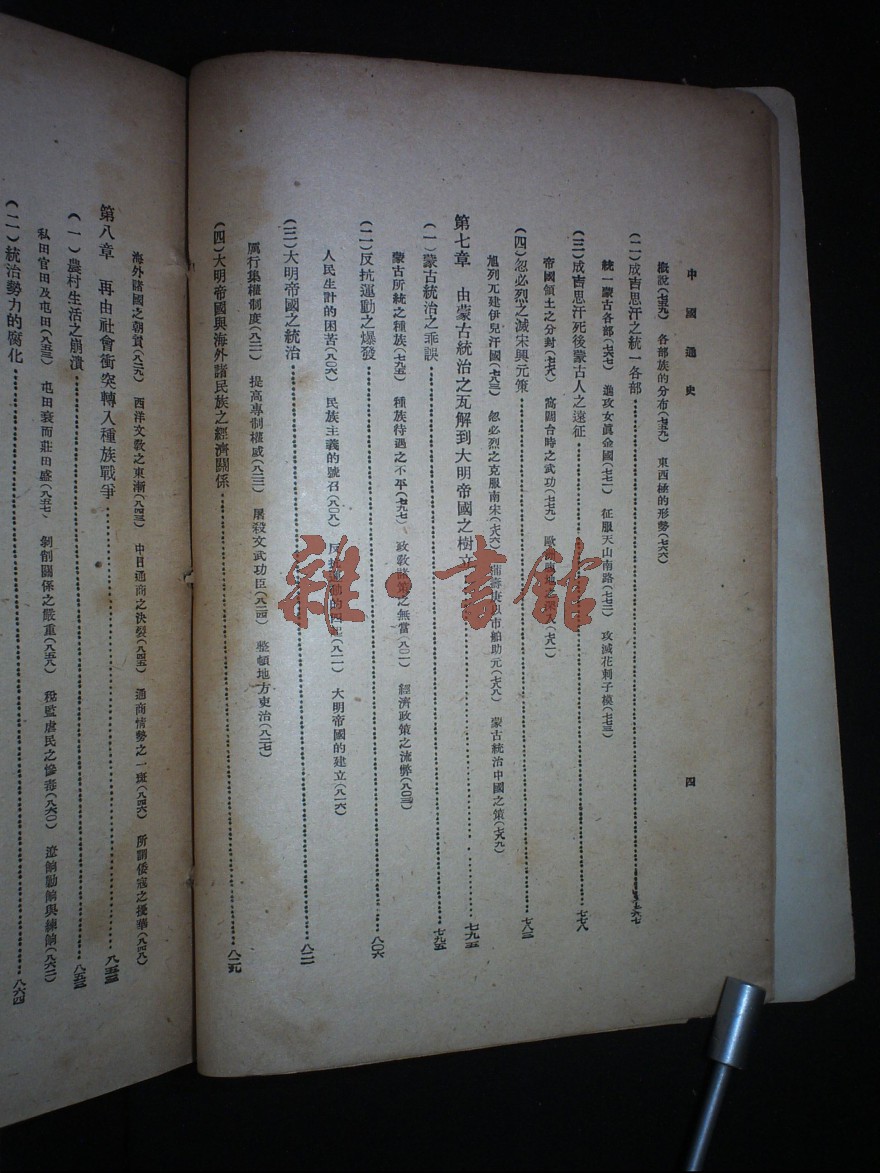 中國通史
四
概說(七五九) 各部族的分布(七五九) 東西極的形勢(七六六)
(二)成吉思汗之統一各部 七六七
統一蒙古各部(七六七) 進攻女眞金國(七七一) 征服天山南路(七七二) 攻滅花剌子模(七七三)
(三)成吉思汗死後蒙古人之遠征 七七八
帝國領土之分封(七七八) 窩闊台時之武功(七七九) 歐洲
(四)忽必烈之滅宋興元策 七八三
旭列兀建伊兒汗國(七八三) 忽必烈之克服南宋(七八六) 蒲壽庚以市舶助元(七八八) 蒙古統治中國之策(七八九)
第七章 由蒙古統治之瓦解到大明帝國之樹立 七九五
(一)蒙古統治之乖誤 七九五
蒙古所統之種族(七九五) 種族待遇之不平(七九七) 政敎諸策之無當(八〇一) 經濟政策之流弊(八〇三)
(二)反抗運動之爆發 八〇六
人民生計的困苦(八〇六) 民族主義的號召(八〇八) 反抗運動的四起(八一一) 大明帝國的建立(八一六)
(三)大明帝國之統治 八二一
厲行集權制度(八二一) 提高專制權威(八二三) 屠殺文武功臣(八二四) 整頓地方吏治(八二七)
(四)大明帝國與海外諸民族之經濟關係 八三九
海外諸國之朝貢(八三六) 西洋文敎之東漸(八四三) 中日通商之決裂(八四五) 通商情勢之一斑(八四六) 所謂倭寇之擾華(八四八)
第八章 再由社會衝突轉入種族戰爭 八五三
(一)農村生活之崩潰 八五三
私田官田及屯田(八五三) 屯田衰而莊田盛(八五七) 剝削關係之嚴重(八五九) 稅監虐民之慘毒(八六〇) 遼餉勦餉與練餉(八六二)
(二)統治勢力的腐化 八六四
雜·書館